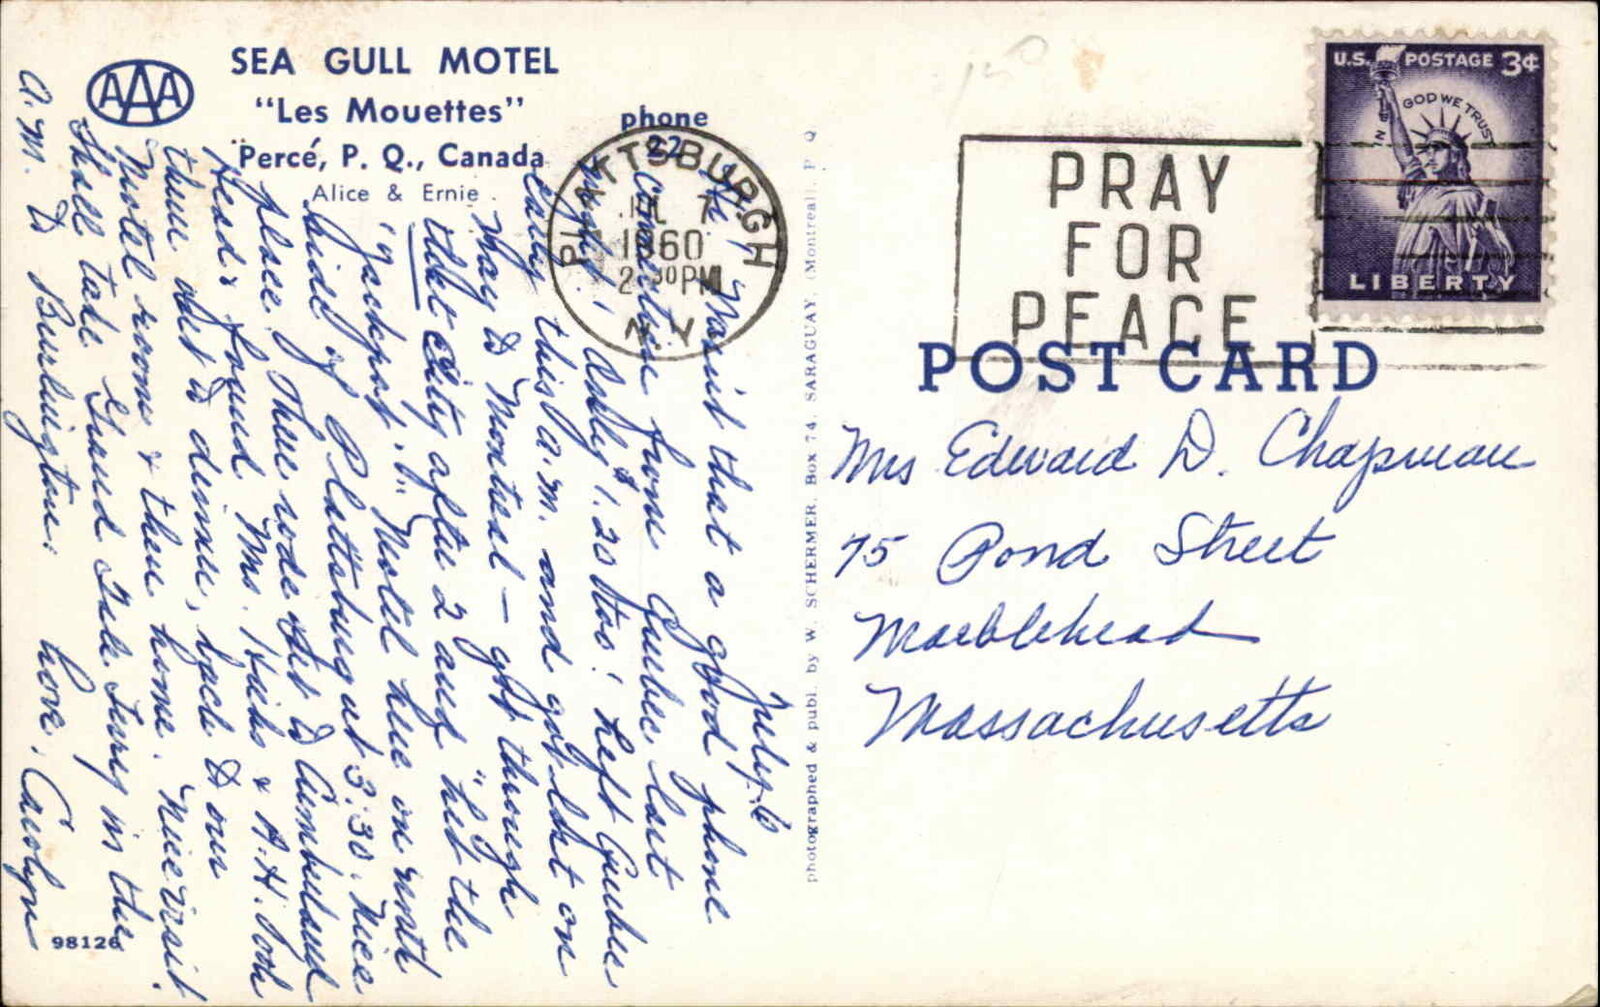 AAA
SEA GULL MOTEL
"Les Mouettes"
phone
22
Percé, P. Q., Canada
Alice & Ernie
July 6
that a good phone
connection from Quebec last
night! Only $1.20 too! Left Quebec
early this a.m. and got lost on
way to Montreal – got through
that City after 2 and "hit the
"jackpot". Motel here on north
side of Plattsburg at 3:30. Nice
place. Then rode out to Cumberland
Head & found Mrs. Hicks & A.H. Took
them out to dinner, back to our
Motel room & then home. Nice visit.
Shall take Grand Isle Ferry in the
a.m. to Burlington.
Love, Carolyn
98126
photographed & publ. by W. SCHERMER, Box 74, SARAGUAY, (Montreal), P Q
PLATTSBURGH
JUL 7
1960
2 30 PM
N.Y.
PRAY
FOR
PEACE
U.S. POSTAGE 3¢
IN GOD WE TRUST
LIBERTY
POST CARD
Mrs Edward D. Chapman
75 Pond Street
Marblehead
Massachusetts